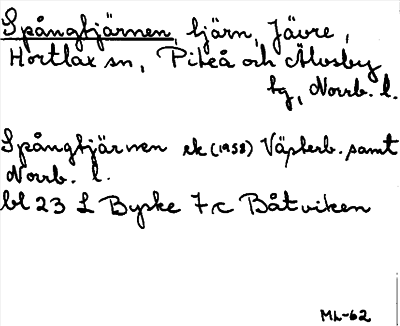 Spångtjärnen, tjärn, Jävre,
Hortlax sn, Piteå och Älvsby
tg, Norrb. l.
Spångtjärnen ek (1958) Västerb. samt
Norrb. l.
bl 23 L Byske 7 c Båtviken
ML-62